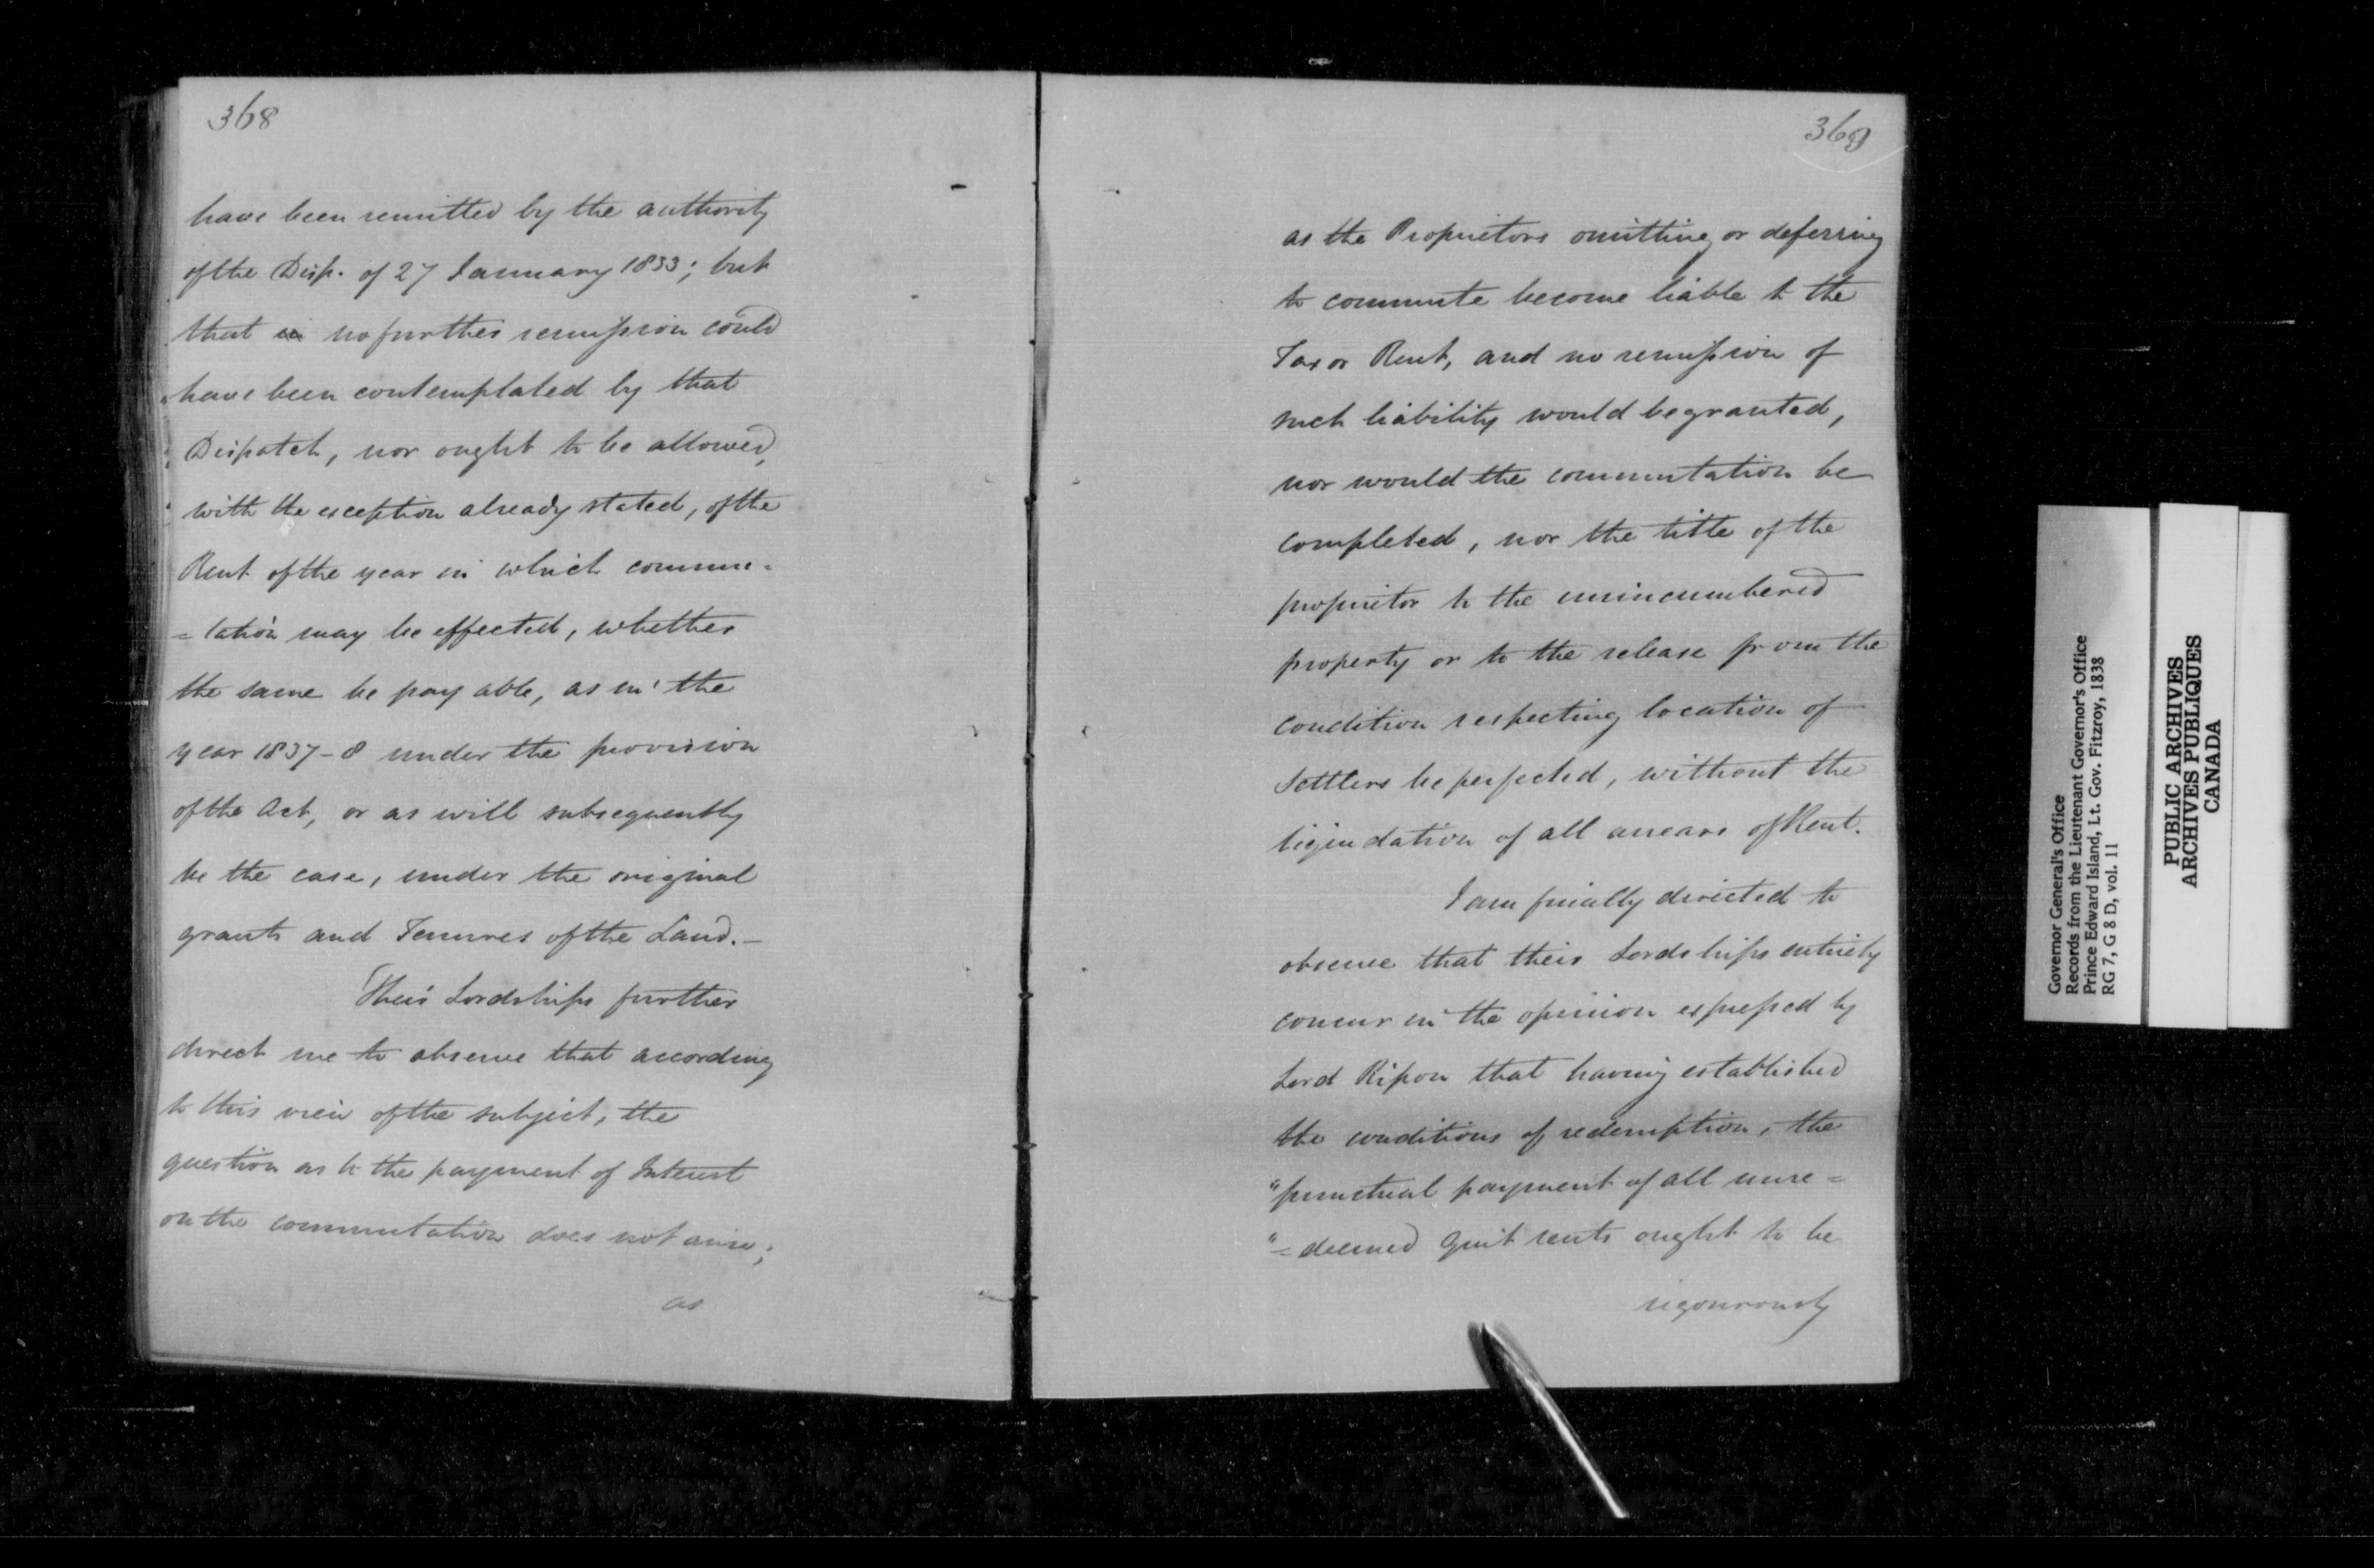 368
have been remitted by the authority
of the Disp. of 27 January 1833; but
that in no further remission could
have been contemplated by that
Dispatch, nor ought to be allowed,
with the exception already stated, of the
Rent of the year in which commu=
=tation may be effected, whether
the same be payable, as in the
year 1837-8 under the provision
of the Act, or as will subsequently
be the case, under the original
grants and Tenures of the Land.—
Their Lordships further
direct me to observe that according
to this view of the subject, the
question as to the payment of Interest
on the commutation does not arise;
as
369
as the Proprietors omitting or deferring
to commute become liable to the
Tax or Rent, and no remission of
such liability would be granted,
nor would the commutation be
completed, nor the title of the
proprietor to the unincumbered
property or to the release from the
condition respecting location of
Settlers be perfected, without the
liquidation of all arrears of Rent.
I am finally directed to
observe that their Lordships entirely
concur in the opinion expressed by
Lord Ripon that having established
the conditions of redemption, the
"punctual payment of all unre=
"=deemed Quit rents ought to be
rigourously
Governor General's Office
Records from the Lieutenant Governor's Office
Prince Edward Island, Lt. Gov. Fitzroy, 1838
RG 7, G 8 D, vol. 11
PUBLIC ARCHIVES
ARCHIVES PUBLIQUES
CANADA